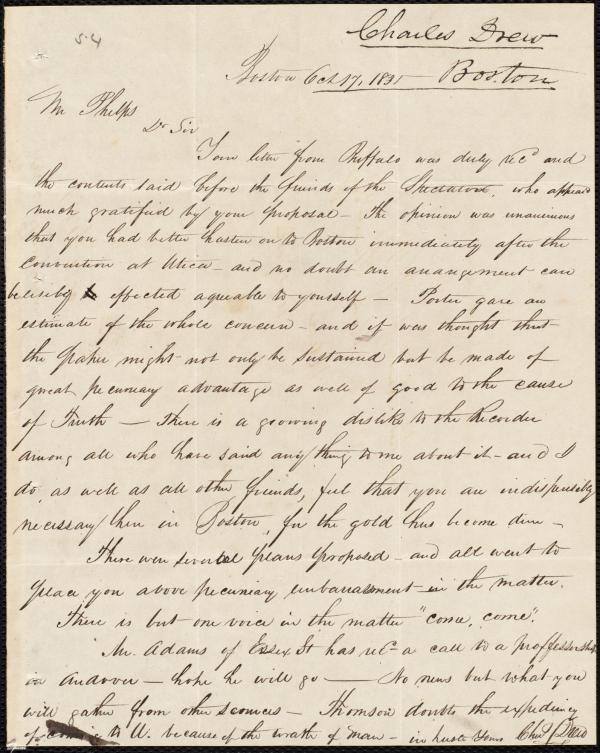 54
Charles Drew
Boston Oct 17, 1835 Boston
Mr Phelps
Dr Sir
Your letter from Buffalo was duly recd and
the contents said before the friends of the Spectator, who appeard
much gratified by your proposal - The opinion was unanimous
that you had better hasten on to Boston immediately after the
Convention at Utica - and no doubt an arrangement can
be effected agreable to yourself - Porter gave an
estimate of the whole concern - and it was thought that
the paper might not only be sustained but be made of
great pecuniary advantage as well of good to the cause
of Truth - There is a growing dislike to the Recorder
among all who have said any thing to me about it - and I
do, as well as all other friends, feel that you are indispensibly
necessary here in Boston, for the gold has become dim -
There were several plans proposed - and all went to
place you above pecuniary embarrassment - in the matter.
There is but one voice in the matter "come, come".
Mr. Adams of Essex St has recd a call to a proffessorship
in Andover - hope he will go - No news but what you
will gather from other sources - Thomson doubts the expediency
of coming to U. because of the wrath of man - in haste yours Chs Drew